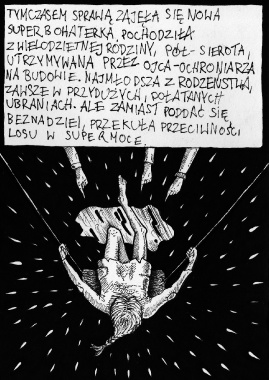 TYMCZASEM SPRAWĄ ZAJĘŁA SIĘ NOWA
SUPERBOHATERKA. POCHODZIŁA
Z WIELODZIETNEJ RODZINY, PÓŁ-SIEROTA,
UTRZYMYWANA PRZEZ OJCA-OCHRONIARZA
NA BUDOWIE. NAJMŁODSZA Z RODZEŃSTWA,
ZAWSZE W PRZYDUŻYCH, POŁATANYCH
UBRANIACH. ALE ZAMIAST PODDAĆ SIĘ
BEZNADZIEI, PRZEKUŁA PRZECIWNOŚCI
LOSU W SUPERMOCE.